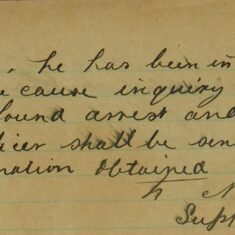 . he has been in
cause inquiry
found arrest and
icer shall be sen
mation obtained
Supt